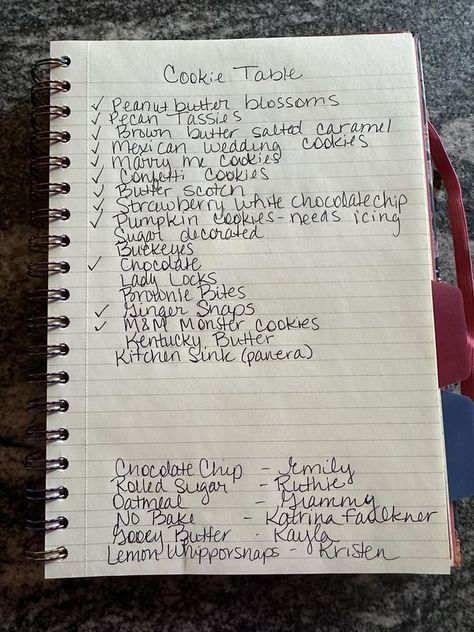 Cookie Table
✓ Peanut butter blossoms
✓ Pecan Tassies
✓ Brown butter salted caramel
✓ Mexican wedding cookies
✓ Marry me cookies
✓ Confetti cookies
✓ Butter scotch
✓ Strawberry white chocolate chip
✓ Pumpkin cookies - needs icing
Sugar decorated
Buckeyes
✓ Chocolate
Lady Locks
Brownie Bites
✓ Ginger Snaps
✓ M&M Monster cookies
Kentucky Butter
Kitchen Sink (panera)
Chocolate Chip - Emily
Rolled Sugar - Ruthie
Oatmeal - Grammy
No Bake - Katrina Faulkner
Gooey Butter - Kayla
Lemon Whipporsnaps - Kristen